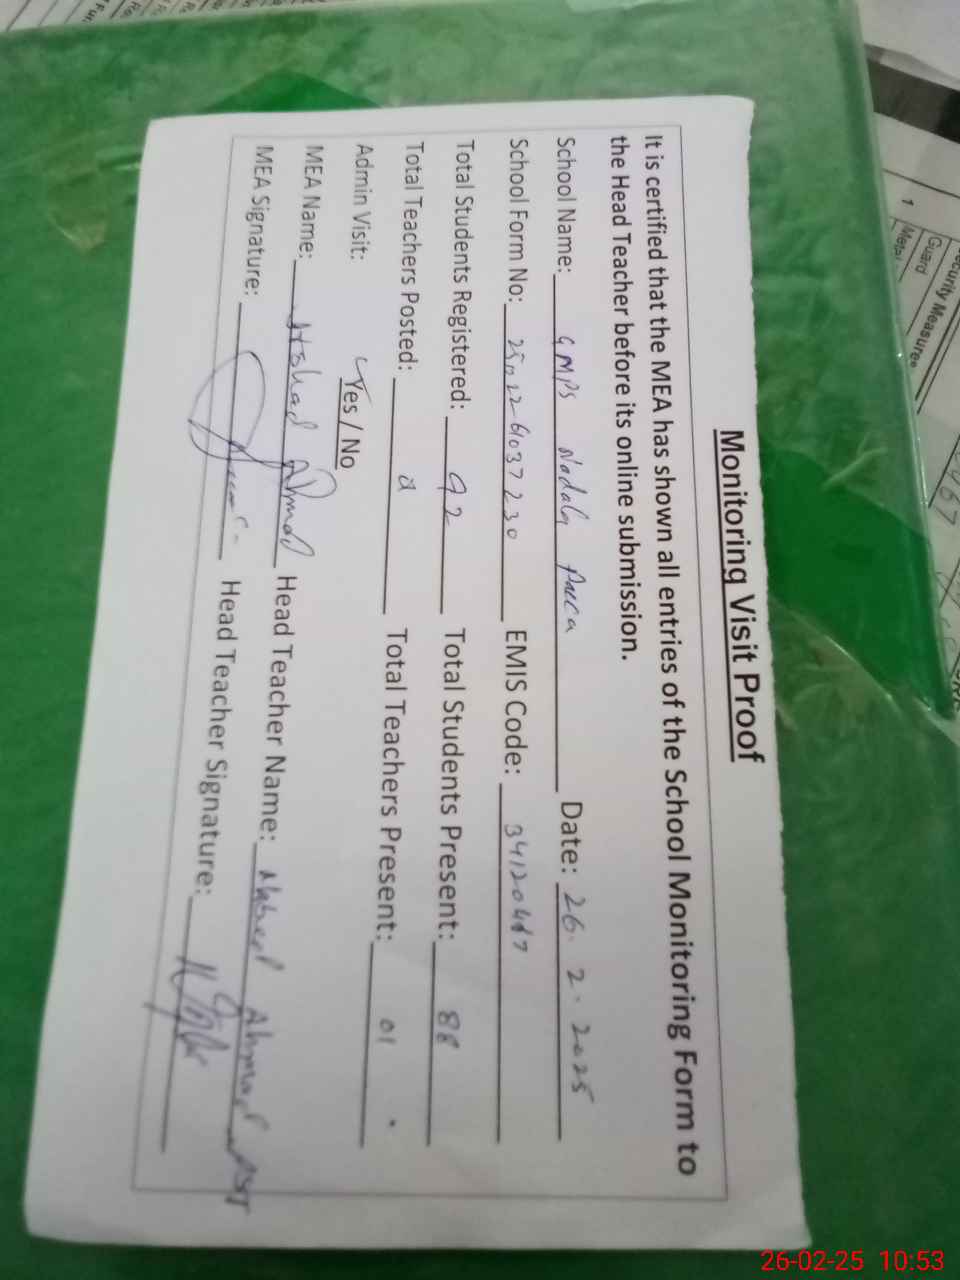 Monitoring Visit Proof
It is certified that the MEA has shown all entries of the School Monitoring Form to
the Head Teacher before its online submission.
School Name: GMPS Nadala Pacca Date: 26.2.2025
School Form No: EMIS Code:
Total Students Registered: 92 Total Students Present: 88
Total Teachers Posted: Total Teachers Present: 01
Admin Visit: Yes / No
MEA Name: Ahmad Head Teacher Name: Ahmad PST
MEA Signature: Head Teacher Signature:
1
Security Measures
Guard
Metal
26-02-25 10:53